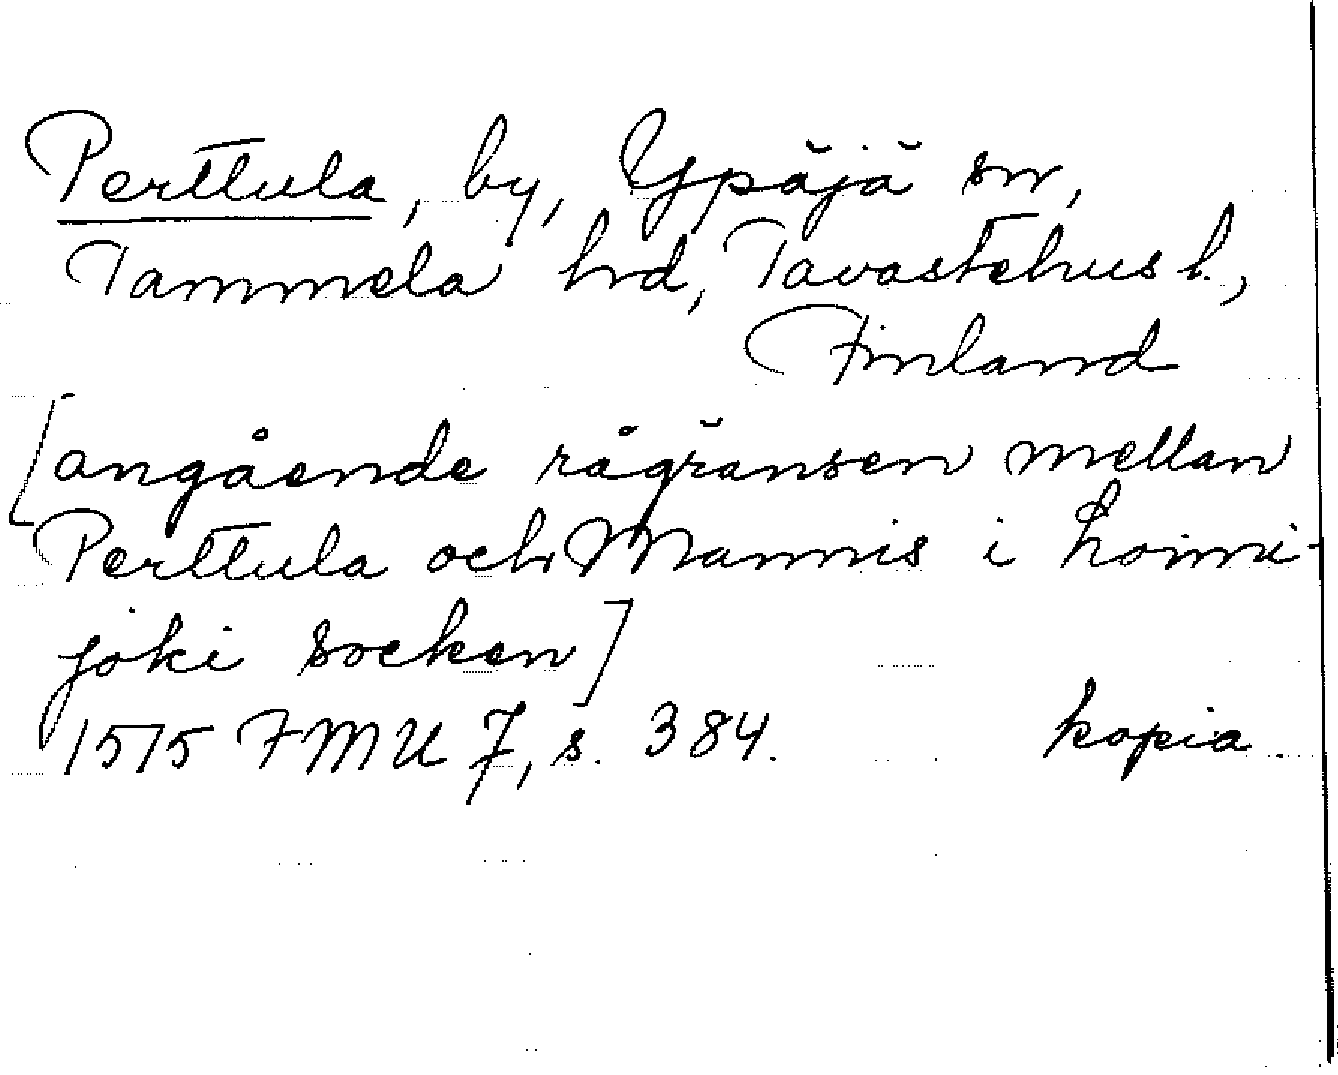 Perttula, by, Ypäjä sn,
Tammela hd, Tavastehus l.,
Finland
[angående rågränsen mellan
Perttula och Mannis i Loimi-
joki socken]
1515 FMU 7, s. 384. kopia